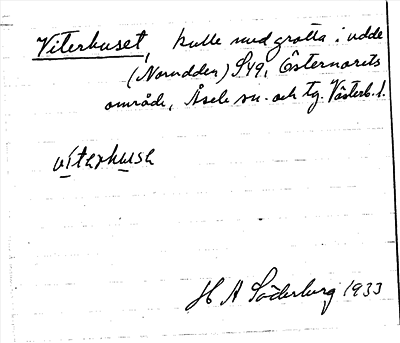 Viterhuset, kulle med grotta i udde
(Norrudden) S49, Östernorets
område, Åsele sn. och tg. Västerb. l.
viterhuse
H A Söderberg 1933